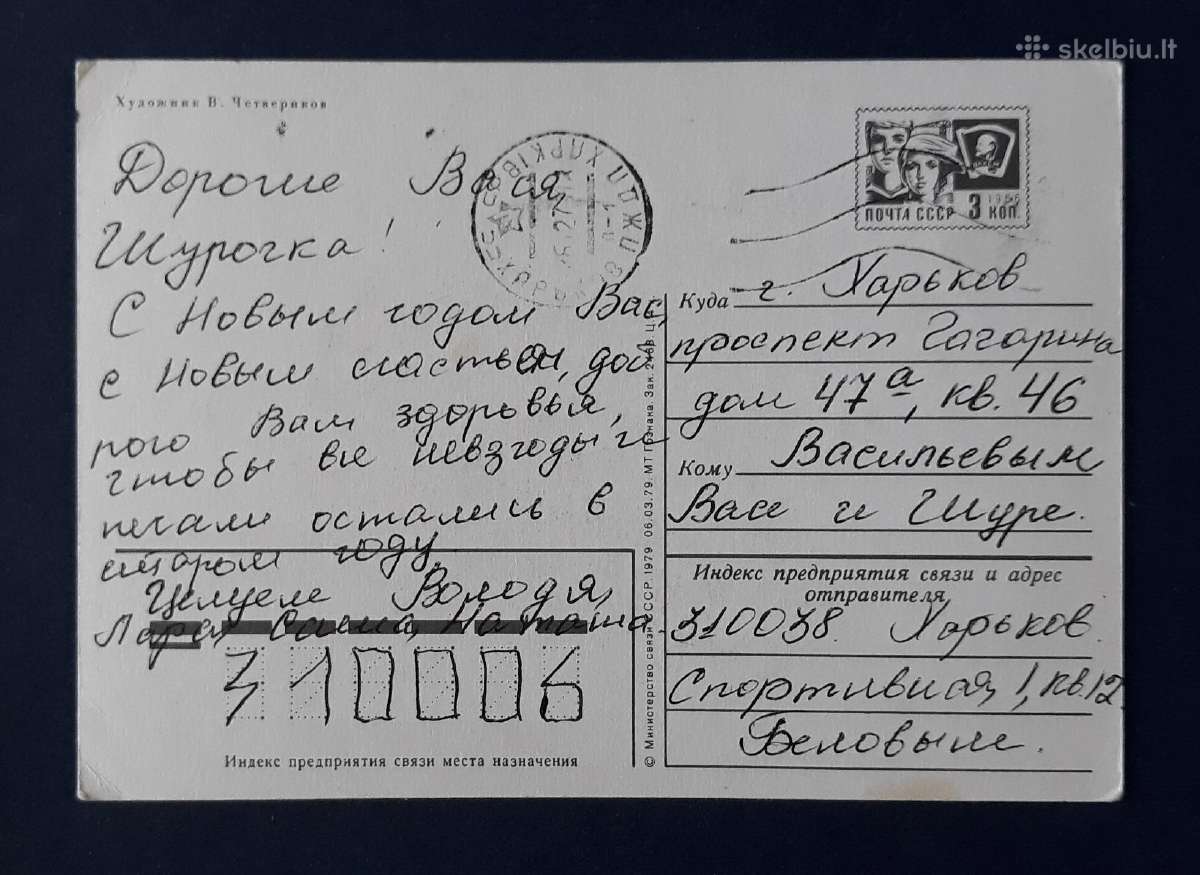 skelbiu.lt
Художник В. Четвериков
Дорогие Вася,
Шурочка!
С Новым годом Вас,
с Новым счастьем, доб
рого Вам здоровья,
чтобы все невзгоды и
печали остались в
старом году.
Целуем Володя,
Лора, Саша, Наташа.
310006
Индекс предприятия связи места назначения
© Министерство связи СССР. 1979 06.03.79. МТ Гознака. Зак.
ПОЧТА СССР 3 КОП.
1966
Куда г. Харьков
проспект Гагарина
дом 47а, кв. 46
Кому Васильевым
Васе и Шуре.
Индекс предприятия связи и адрес
отправителя
310038 Харьков
Спортивная, 1, кв. 12
Беловым.